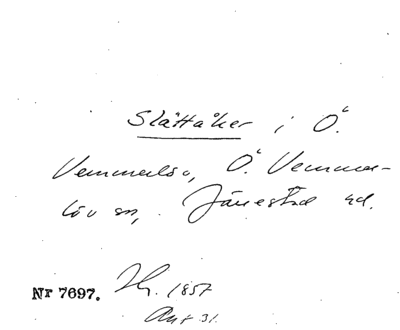 Slättåker i Ö.
Vemmerlöv, Ö. Vemmer-
löv sn, Järrestad hd.
Nr 7697. 1857
Akt 31.